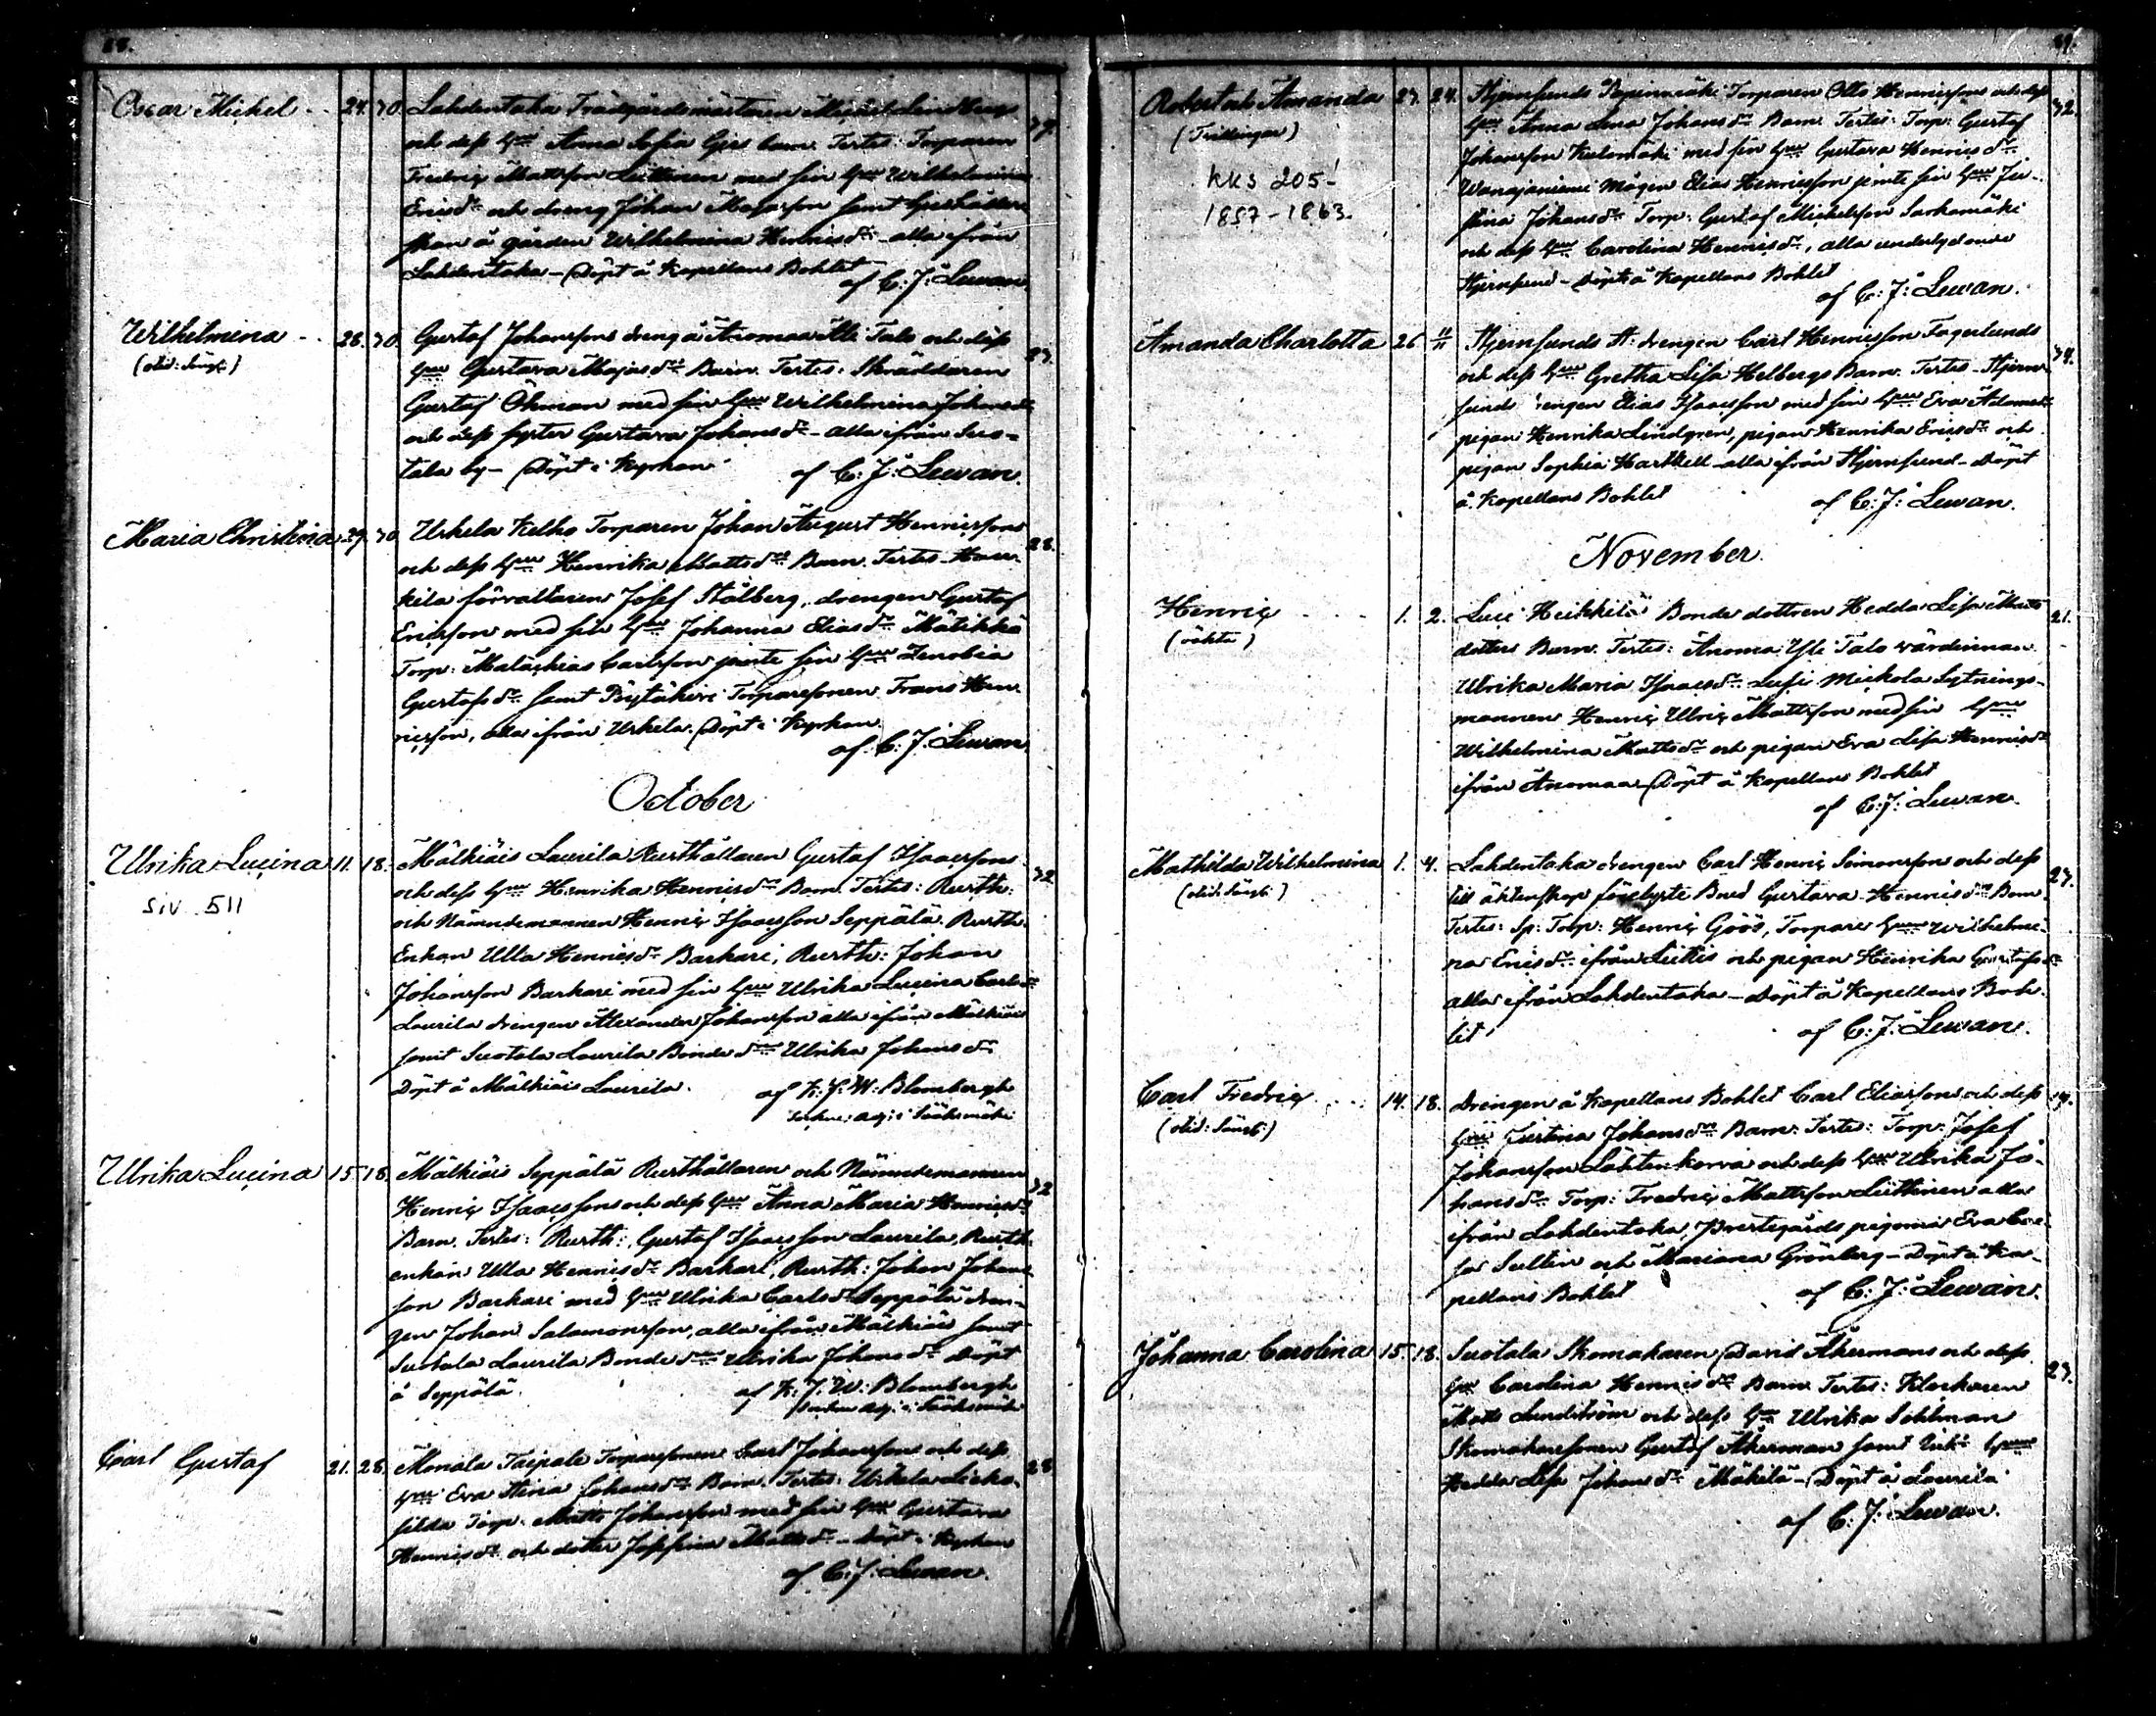 Oscar Michel 24. 30. Lahdentaka Trädgårdsmästaren Michel Lindberg
och dess hru Anna Sofia Girs barn. Testes: Torparen
Fredric Mattsson Liittinen med sin hru Wilhelmina
Ericsdr och dreng Johan Majasson samt
å gården Wilhelmina Henricsdr - alla ifrån
Lahdentaka - Döpt å Kapellans Bohlet
af C: J: Lewan.
Wilhelmina 28. 30. Gustaf Johanssons dreng å Anomaa Ylli Talo och dess
hru Gustava Majasdr Barn. Testes: Skräddaren
Gustaf Öhman med sin hru Wilhelmina Johansdr
och dess syster Gustava Johansdr - alla ifrån Suo-
tala by - Döpt i Kyrkan
af C: J: Lewan.
Maria Christina 29. 30. Urhela Kelho Torparen Johan August Henricssons 28.
och dess hru Henrika Mattsdr Barn. Testes -
kila förvaltaren Josef Stålberg, drengen Gustaf
Ericsson med sin hru Johanna Eliasdr Mätikkö
Torp: Malachias Carlsson jemte sin hru Zenobia
Gustafsdr samt Pöytäkivi Torparesonen Frans Hen-
ricsson, alla ifrån Urhela. Döpt i Kyrkan
af C. J. Lewan
October
Ulrika Lucina 11. 18. Mälkiäis Laurila Rusthållaren Gustaf Isaacssons 32
siv. 511
och dess hru Henrika Henricsdr Barn. Testes: Rusth:
och Nämndemannen Henric Isaacsson Seppälä. Rusth:
Enkan Ulla Henricsdr Barkari, Rusth: Johan
Johansson Barkari med sin hru Ulrika Lucina Carlsdr
Laurila drengen Alexander Johansson alla ifrån Mälkiäis
samt Suotala Laurila Bonde dr Ulrika Johansdr
Döpt å Mälkiäis Laurila. af K: J: W: Blombergh
adj: i Sääksmäki
Ulrika Lucina 15. 18. Mälkiäis Seppälä Rusthållaren och Nämndemannen 32
Henric Isaacssons och dess hru Anna Maria Henricsdr
Barn. Testes: Rusth: Gustaf Isaacsson Laurila, Rusth:
enkan Ulla Henricsdr Barkari, Rusth: Johan Johans-
son Barkari med hru Ulrika Carlsdr Seppälä dren-
gen Johan Salamonsson, alla ifrån Mälkiäis samt
Suotala Laurila Bonde dr Ulrika Johansdr Döpt
å Seppälä. af K: J: W: Blombergh
adj: i Sääksmäki
Carl Gustaf 21. 28. Monala Taipale Torparesonen Carl Johanssons och dess 28
hru Eva Stina Johansdr Barn. Testes: Urhela
Torp: Matts Johansson med sin hru Gustava
Henricsdr och dotter Josefina Mattsdr - Döpt i Kyrkan
af C: J: Lewan.
Robert och Amanda 23. 24. Hjernfunds Torparen Otto Henricssons och dess 32.
(Trillingar)
KKS 205-
1857-1863.
hru Anna Johansdr Barn. Testes: Torp: Gustaf
Johansson Kulomäki med sin hru Gustava Henricsdr
Wanajaniemi Mågen Elias Henricsson jemte sin hru Ju-
stina Johansdr Torp: Gustaf Michelsson Sarkamäki
och dess hru Carolina Henricsdr, alla underlydande
Hjernfund - Döpt å Kapellans Bohlet
af C: J: Lewan.
Amanda Charlotta 26 Hjernfunds drengen Carl Henricsson Fagerlunds
och dess hru Gretha Lisa Helbergs Barn. Testes - Hjern-
funds drengen Elias Isaacsson med sin hru Eva Adamsdr
pigan Henrika Lindgren, pigan Henrika Ericsdr och
pigan Sophia Harthell alla ifrån Hjernfund - Döpt
å Kapellans Bohlet af C: J: Lewan.
November
Henric 1. 2. Heikkilä Bonde dottren Hedda Lisa Matts 21.
(oäkta)
dotters Barn. Testes: Anomaa Yli Talo värdinnan
Ulrika Maria Isaacsdr Mickola Sytnings-
mannen Henric Ulric Mattsson med sin hru
Wilhelmina Mattsdr och pigan Eva Lisa Henricsdr
ifrån Anomaa - Döpt å Kapellans Bohlet
af C: J: Lewan.
Mathilda Wilhelmina 1. 4. Lahdentaka drengen Carl Henric Simonssons och dess
till äktenskap förelyste Brud Gustava Henricsdr Barn
Testes: Sp: Torp: Henric Göös, Torpare hru Wilhelmi-
na Ericsdr ifrån Liittis och pigan Henrika Gustafsdr
alla ifrån Lahdentaka - Döpt å Kapellans Boh-
let af C: J: Lewan.
Carl Fredric 14. 18. Drengen å Kapellans Bohlet Carl Eliassons och dess
hru Justina Johansdr Barn. Testes: Torp: Josef
Johansson Lähtenkorva och dess hru Ulrika Jo-
hansdr Torp: Fredric Mattsson Liittinen alla
ifrån Lahdentaka, Prestegårds pigorna Eva
och Mariana Grönberg - Döpt å Ka-
pellans Bohlet af C: J: Lewan.
Johanna Carolina 15. 18. Suotala Skomakaren David Åkermans och dess
hru Carolina Henricsdr Barn. Testes: Klockaren
Matts Lundström och dess hru Ulrika Sohlman
Skomakaresonen Gustaf Åkerman samt hru
Hedda Lisa Johansdr Mäkilä - Döpt å Laurila
af C: J: Lewan.